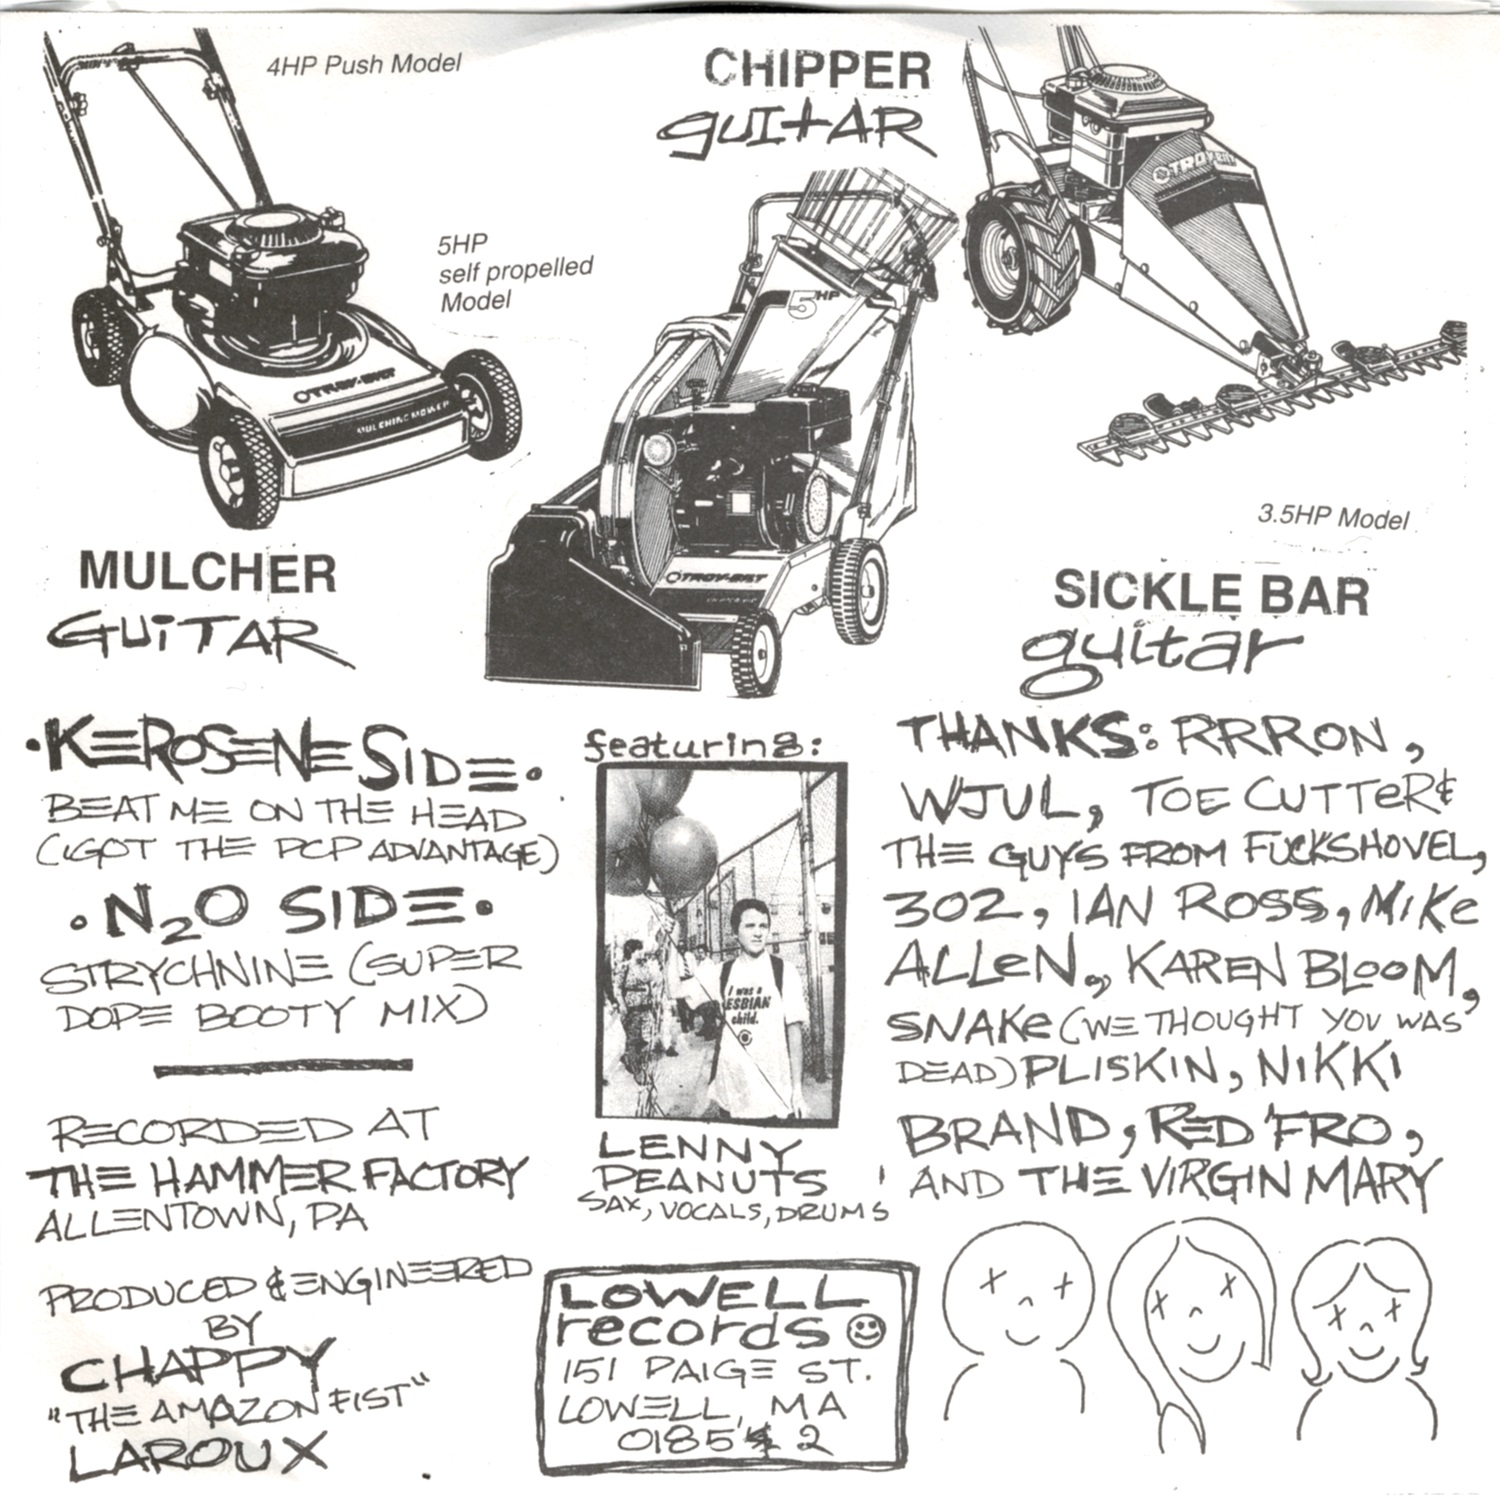 4HP Push Model
CHIPPER
guitAR
TROY-BILT
5HP
self propelled
Model
5HP
TROY-BILT
MULCHING MOWER
3.5HP Model
TROY-BILT
MULCHER
GUiTAR
SICKLE BAR
guitar
·KEROSENE SIDE·
BEAT ME ON THE HEAD
(I GOT THE PCP ADVANTAGE)
·N₂O SIDE·
STRYCHNINE (SUPER
DOPE BOOTY MIX)
RECORDED AT
THE HAMMER FACTORY
ALLENTOWN, PA
PRODUCED & ENGINEERED
BY
CHAPPY
"THE AMAZON FIST"
LAROUX
featuring:
I was a
ESBIAN
child.
LENNY
PEANUTS
SAX, VOCALS, DRUMS
LOWELL
records
151 PAIGE ST.
LOWELL, MA
0185 2
THANKS: RRRON,
WJUL, TOE CUTTER &
THE GUYS FROM FUCKSHOVEL,
302, IAN ROSS, MiKe
ALLeN, KAREN BLooM,
SNAKe (WE THOUGHT YOU WAS
DEAD) PLISKIN, NiKKi
BRAND, RED 'FRO,
AND THE VIRGIN MARY